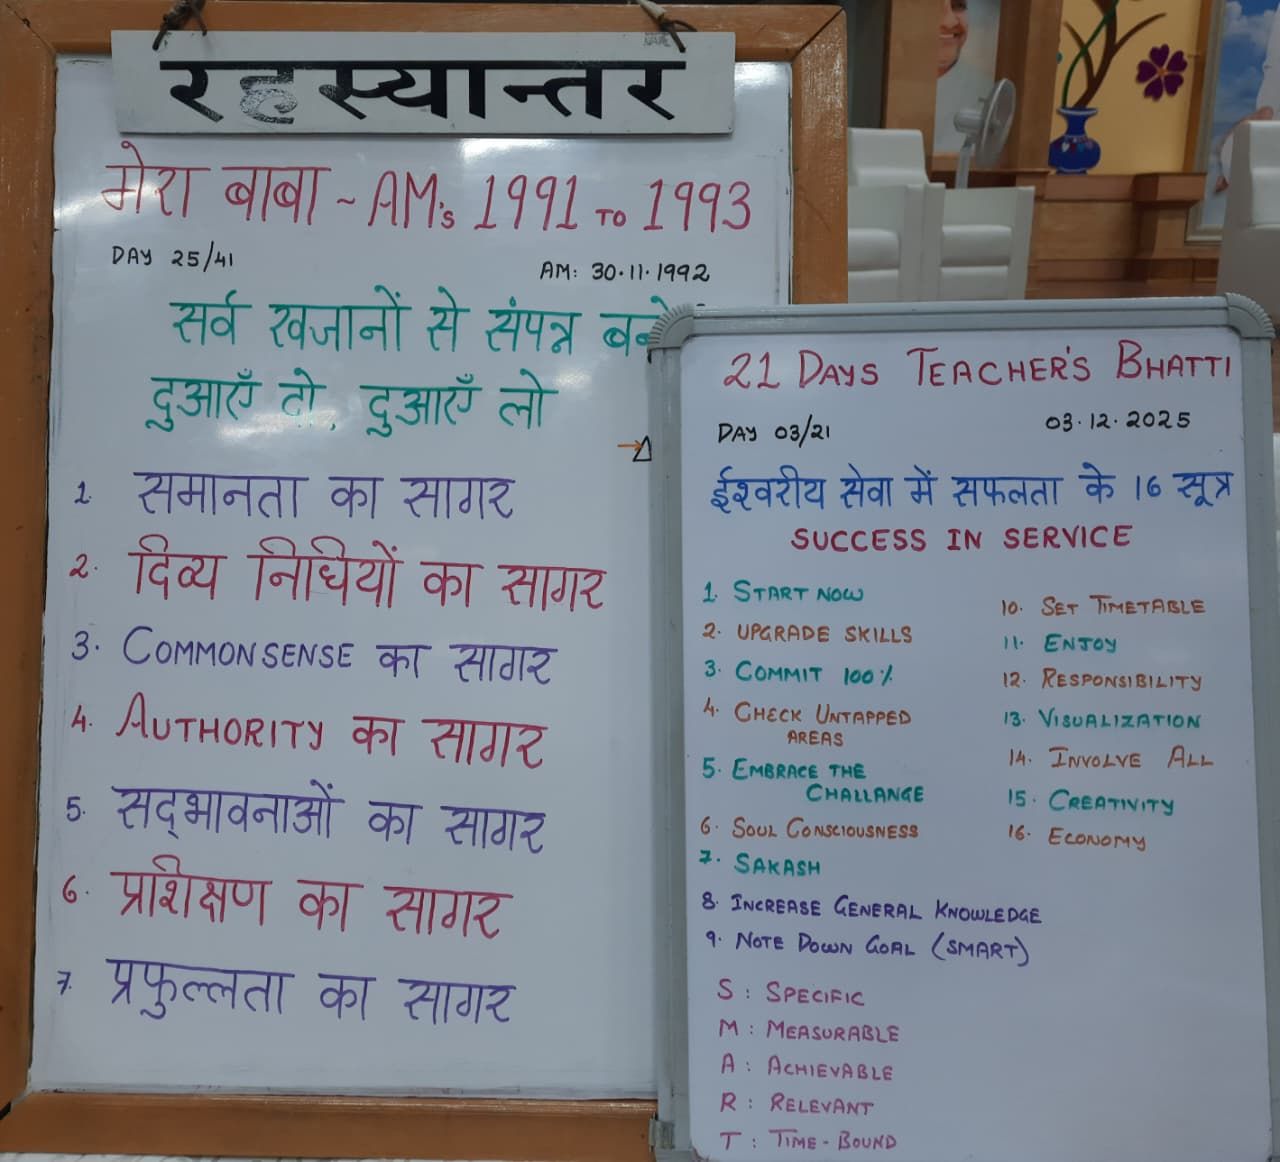 रहस्यान्तर
मेरा बाबा ~ AM's 1991 TO 1993
DAY 25/41
AM: 30.11.1992
सर्व खजानों से संपन्न बनो
दुआएँ दो, दुआएँ लो
1. समानता का सागर
2. दिव्य निधियों का सागर
3. COMMONSENSE का सागर
4. AUTHORITY का सागर
5. सद्‌भावनाओं का सागर
6. प्रशिक्षण का सागर
7. प्रफुल्लता का सागर
21 DAYS TEACHER'S BHATTI
DAY 03/21
03.12.2025
ईश्वरीय सेवा में सफलता के 16 सूत्र
SUCCESS IN SERVICE
1. START NOW
2. UPGRADE SKILLS
3. COMMIT 100%
4. CHECK UNTAPPED
AREAS
5. EMBRACE THE
CHALLANGE
6. SOUL CONSCIOUSNESS
7. SAKASH
8. INCREASE GENERAL KNOWLEDGE
9. NOTE DOWN GOAL (SMART)
10. SET TIMETABLE
11. ENJOY
12. RESPONSIBILITY
13. VISUALIZATION
14. INVOLVE ALL
15. CREATIVITY
16. ECONOMY
S : SPECIFIC
M : MEASURABLE
A : ACHIEVABLE
R : RELEVANT
T : TIME-BOUND